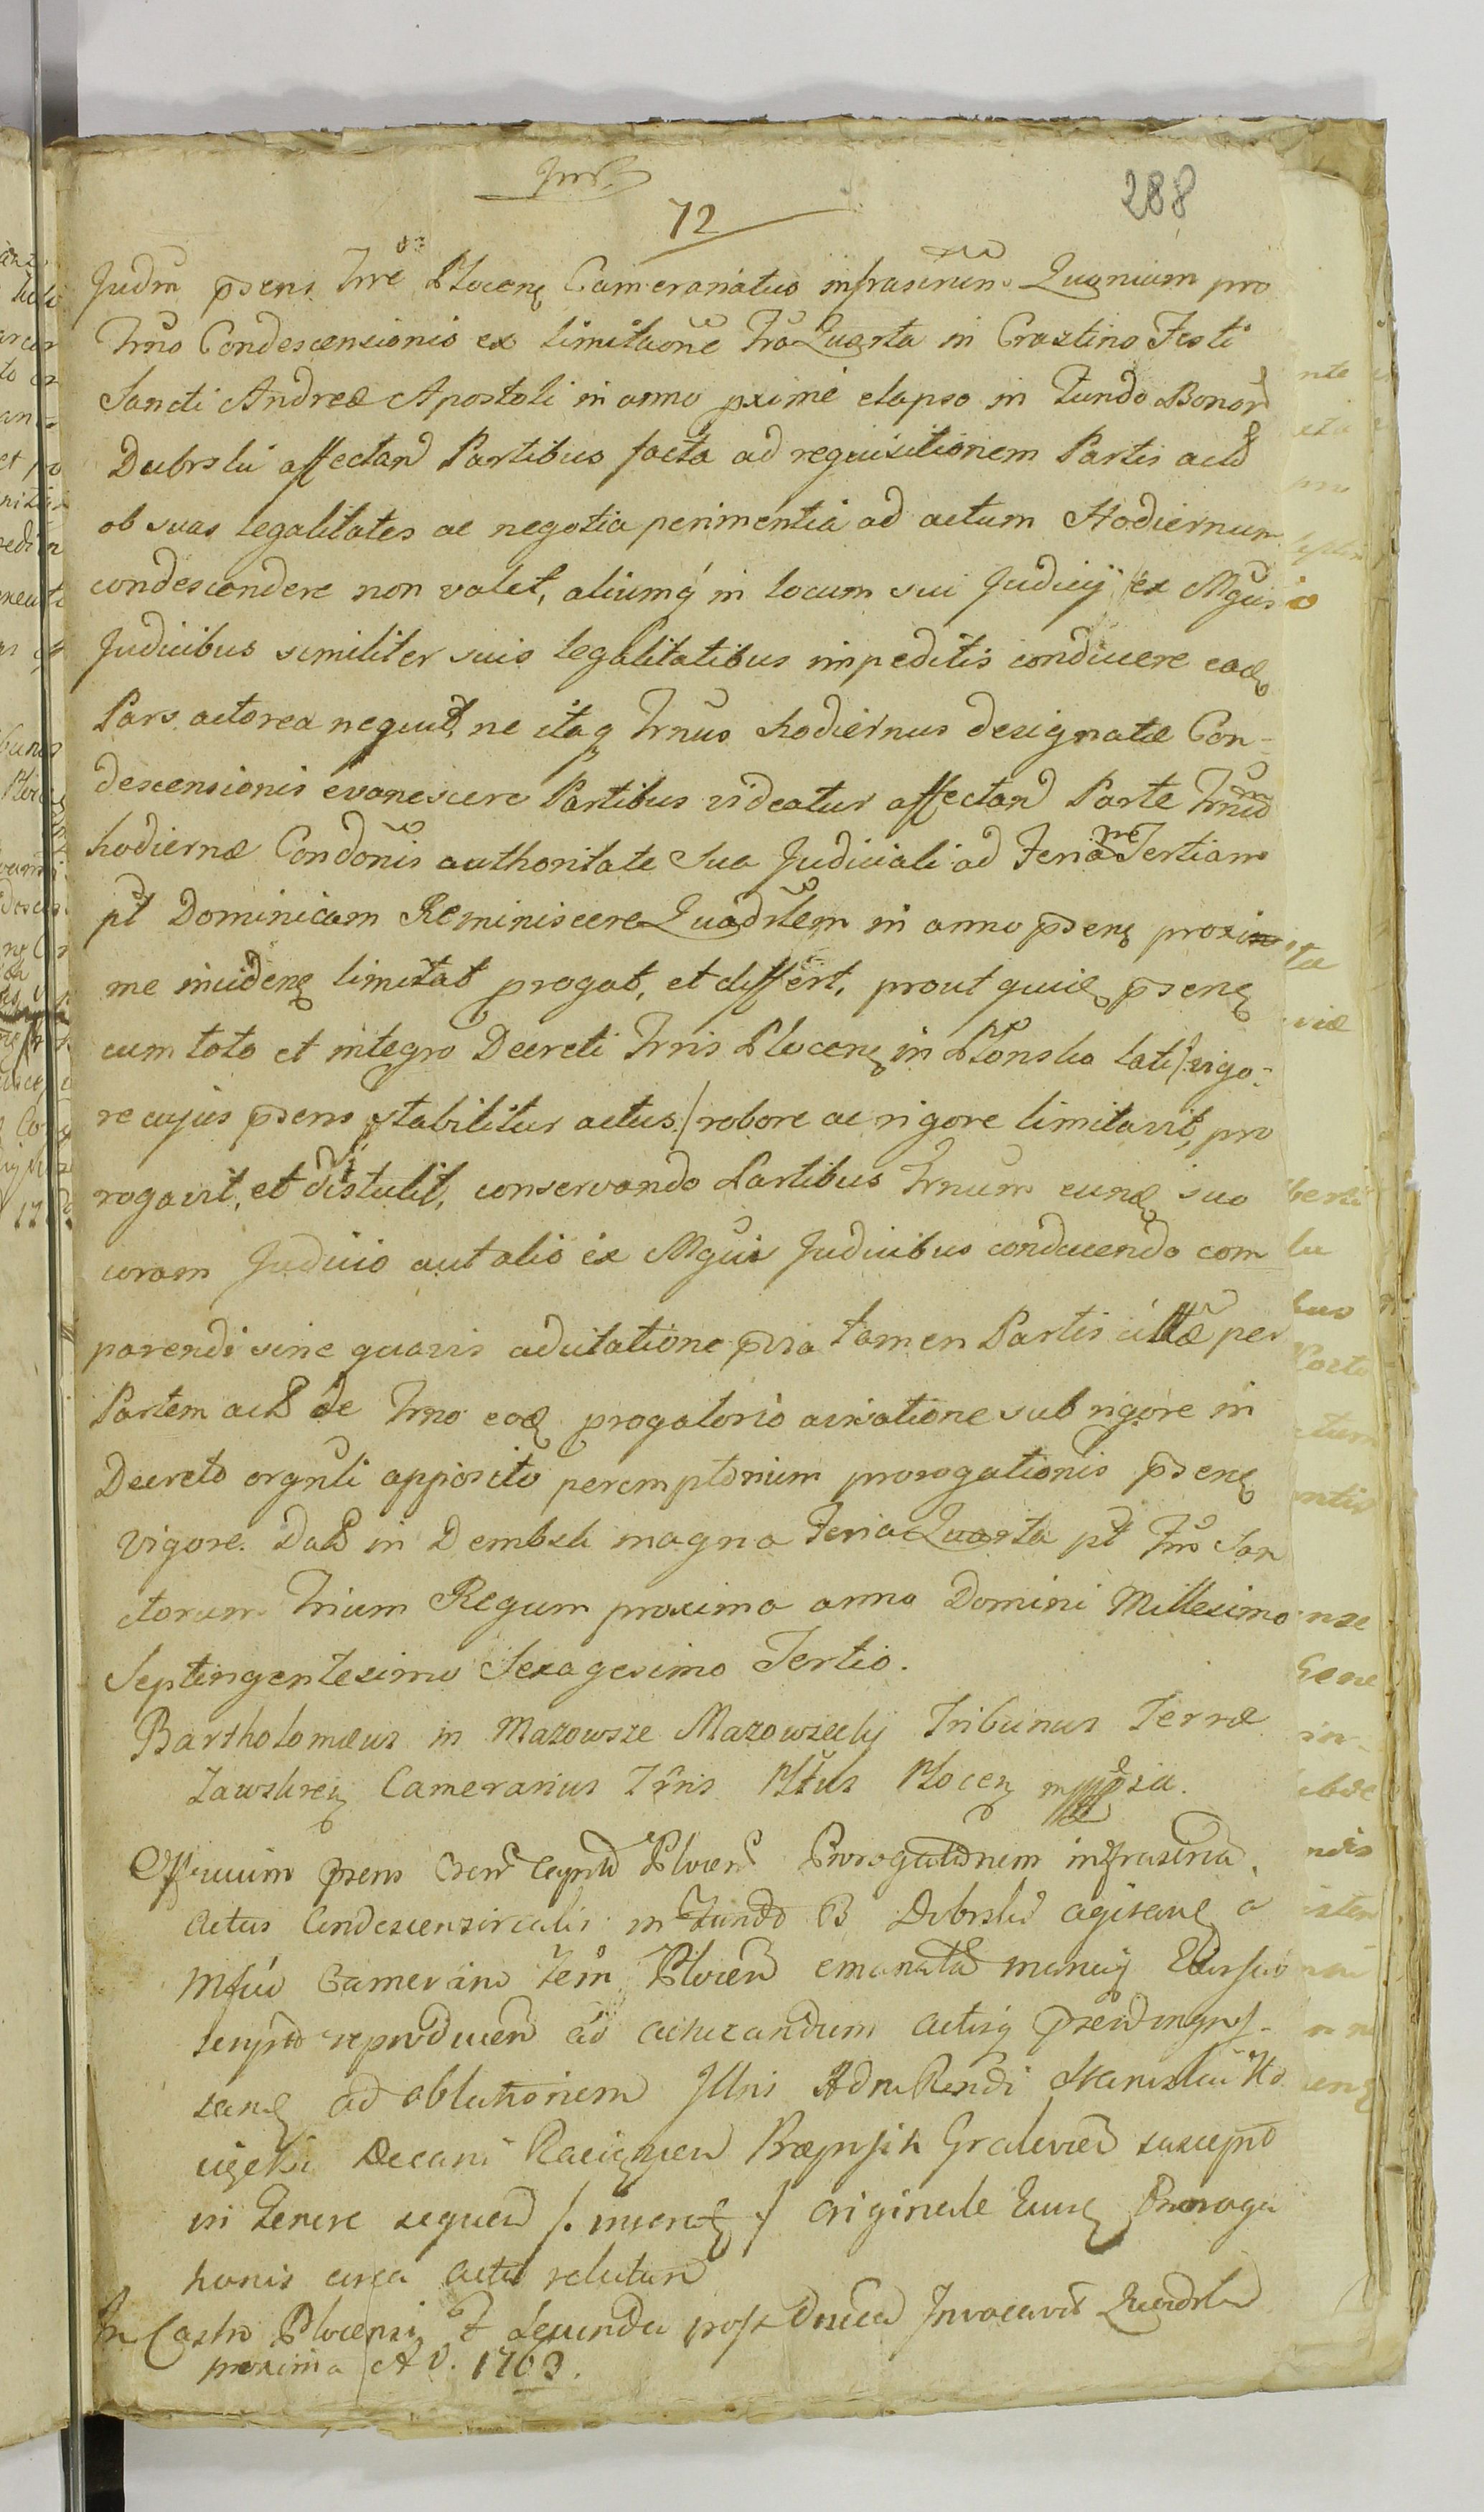 288
72
Judm psens Trre Plocens Cameranatus infrascrum. Quoniam pro
Trno Condescensionis ex limitaone Fra Quarta in Crastino Festi
Sancti Andreæ Apostoli in anno pxime elapso in Fundo Bonor
Dubrski affectand Partibus facta ad requisitionem Partis actæ
ob suas legalitates ac negotia perimentia ad actum Hodiernum
condescendere non valet, aliumq in locum sui Judicij ex Mgcis
Judicibus similiter suis legalitatibus impeditis conducere eadem
Pars actorea nequit, ne itaq Trnus hodiernus designatæ Con-
descensionis evanescere Partibus videatur affectand Parte Trnum
hodiernæ Condonis authoritate Sua Judiciali ad Feriam Tertiam
pt Dominicam Reminiscere Quadrlem in anno psens proxi
me inciden limitat progat, et differt, prout quidem psens
cum toto et integro Decreti Trris Plocens in Płonsko lati /: vigo:
re cujus psens stabilitur actus :/ robore ac rigore limitavit, pro
rogavit, et distulit, conservando Partibus Trnum eundem suo
coram Judicio aut alio ex Mgcis Judicibus conducendo com
parendi sine quavis adcitatione pvia tamen Partis cittæ per
Partem actæ de Trno eodem progatorio avisatione sub rigore in
Decreto orgnli apposito peremptorium prorogationis psens
vigore. Dat in Dembsk magna Feria Quarta pt Fm San
ctorum Trium Regum proxima anno Domini Millesimo
Septingentesimo Sexagesimo Tertio.
Bartholomæus in Mazowsze Mazowiecky Tribunus Terræ
Zawskren Camerarius Trris Pltus Plocen mppria.
Officium psens Castren Capit Plocen Prorogationem infrascrta
actus Condescensirialis in Fundo B Dobrsko agitand a
Mfco Camerario Terr Plocen emanata manuq Ejus sub
script reproducen ad acticandum actisq psentib ingros-
sand ad oblationem Jllris Adm Rendi Stanislai Ko
Decani Raciązen Præpositi Gralevien suscepit
in Tenore sequen /. inserat ./ originale Ejusd Proroga
tionis circa acta relictum
In Castro Plocensi F Secunda post Dnicam Jnvocavit Quadrlem
proxima A D. 1763.